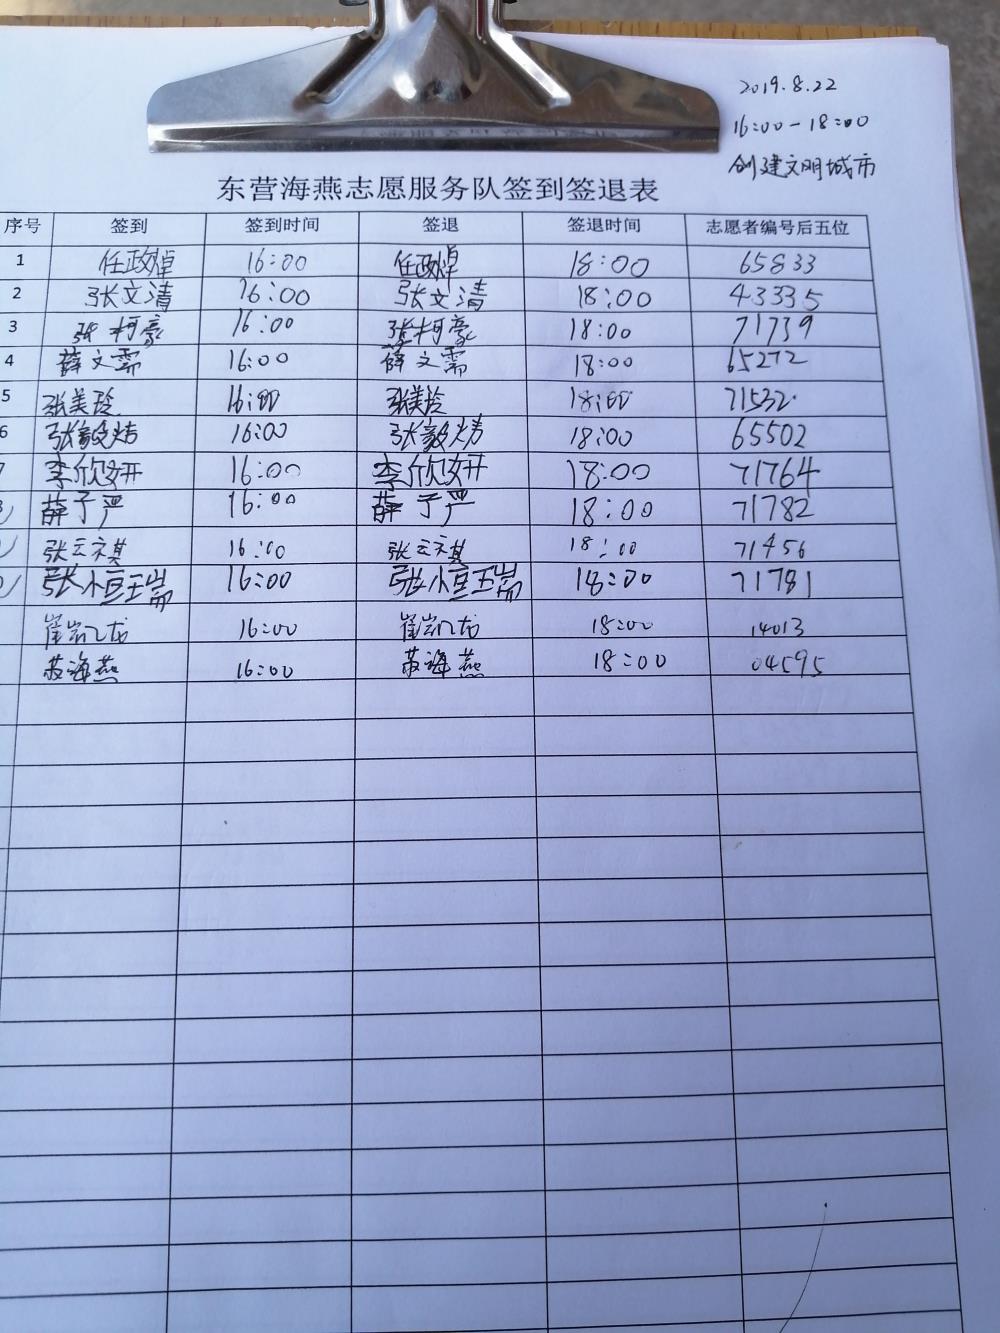 2019.8.22
16:00-18:00
创建文明城市
东营海燕志愿服务队签到签退表
序号 签到 签到时间 签退 签退时间 志愿者编号后五位
1 任政焯 16:00 任政焯 18:00 65833
2 张文清 16:00 张文清 18:00 43335
3 张柯豪 16:00 张柯豪 18:00 71739
4 薛文需 16:00 薛文需 18:00 65272
5 张美玲 16:00 张美玲 18:00 71532
6 张毅 16:00 张毅 18:00 65502
7 李欣妍 16:00 李欣妍 18:00 71764
薛予严 16:00 薛予严 18:00 71782
张云祺 16:00 张云祺 18:00 71456
张小 16:00 张小 18:00 71781
崔凯龙 16:00 崔凯龙 18:00 14013
苏海燕 16:00 苏海燕 18:00 04595